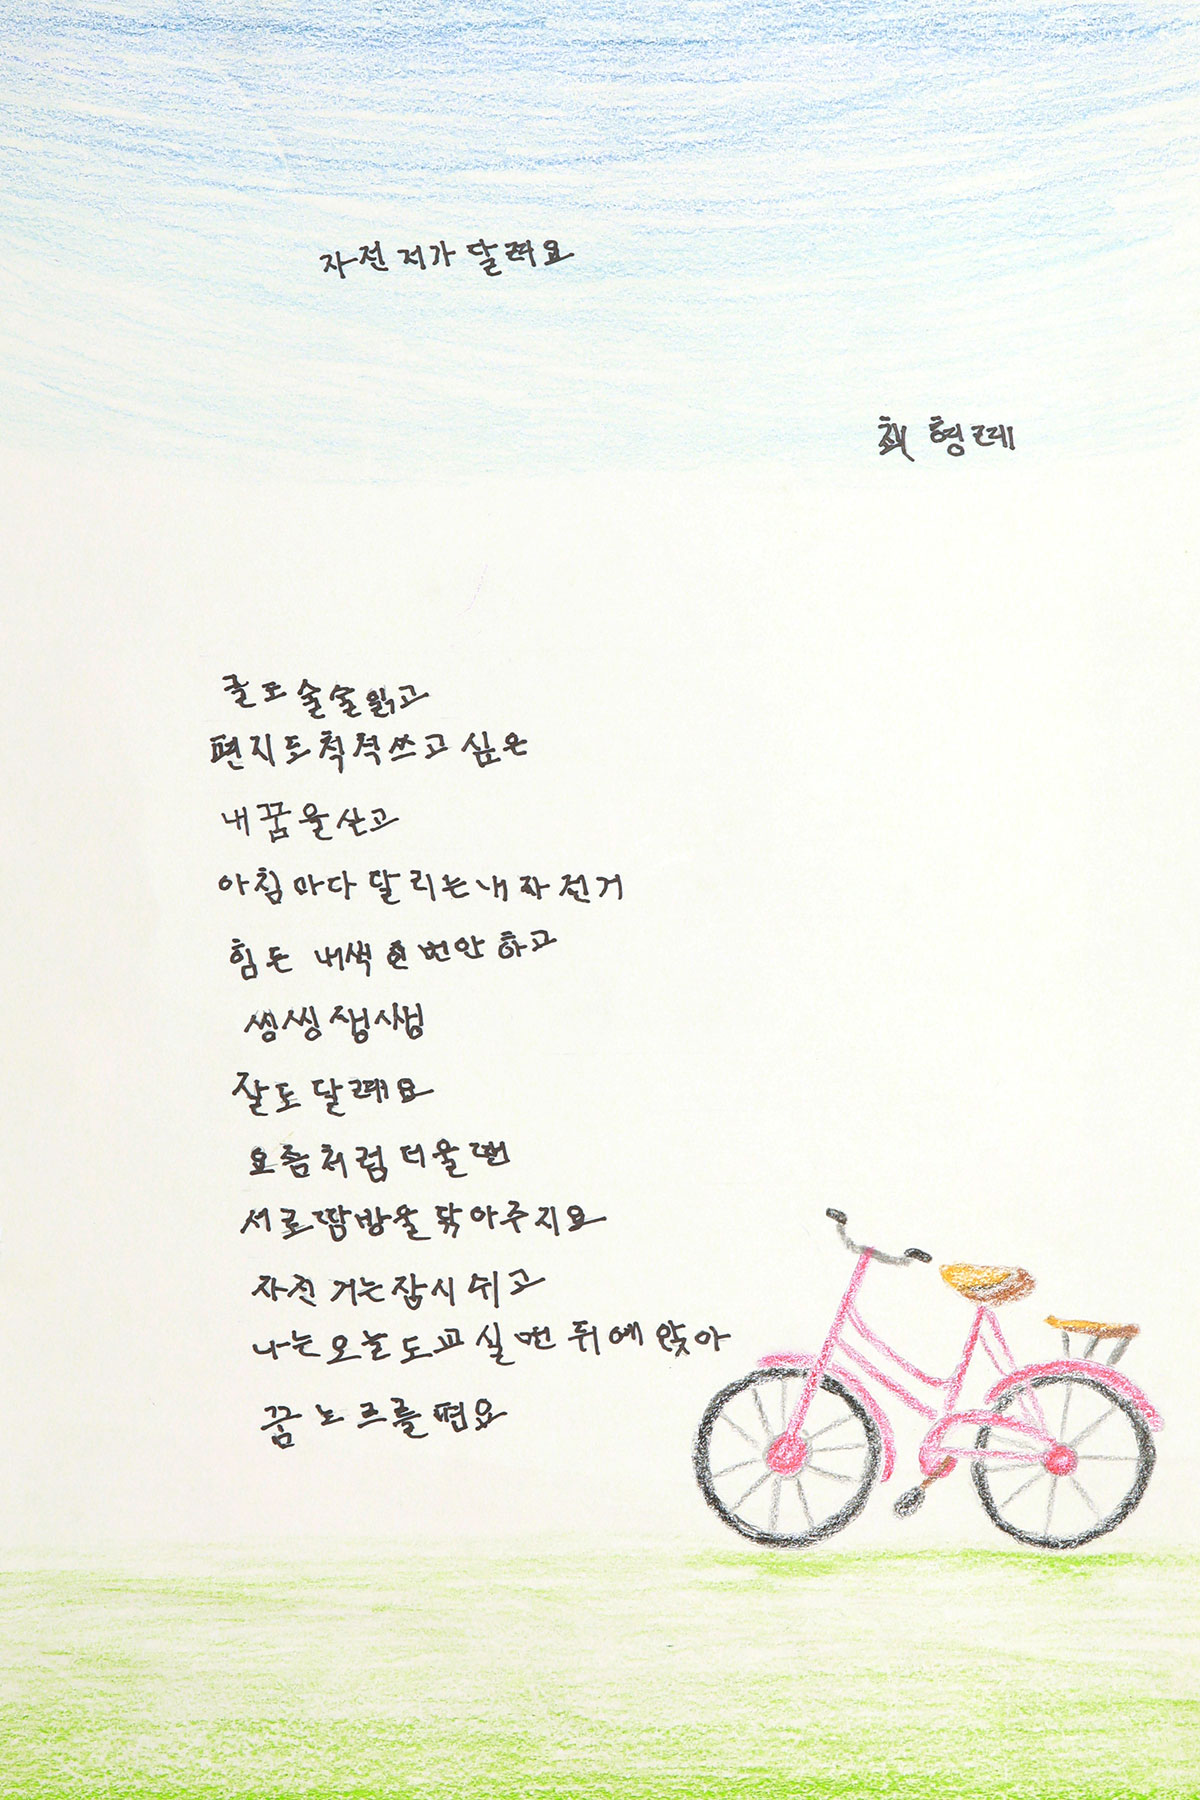 자전저가 달려요
최형레
글도 술술 읽고
편지도 척척 쓰고 싶은
내 꿈을 산고
아침마다 달리는 내 자전거
힘든 내색 한번 안하고
씽씽 쟁생
잘도 달례요
요즘처럼 더울땐
서로 땀방울 닦아주지요
자전거는 잠시 쉬고
나는 오늘도 교실 맨 뒤에 앉아
꿈 노트를 폅요